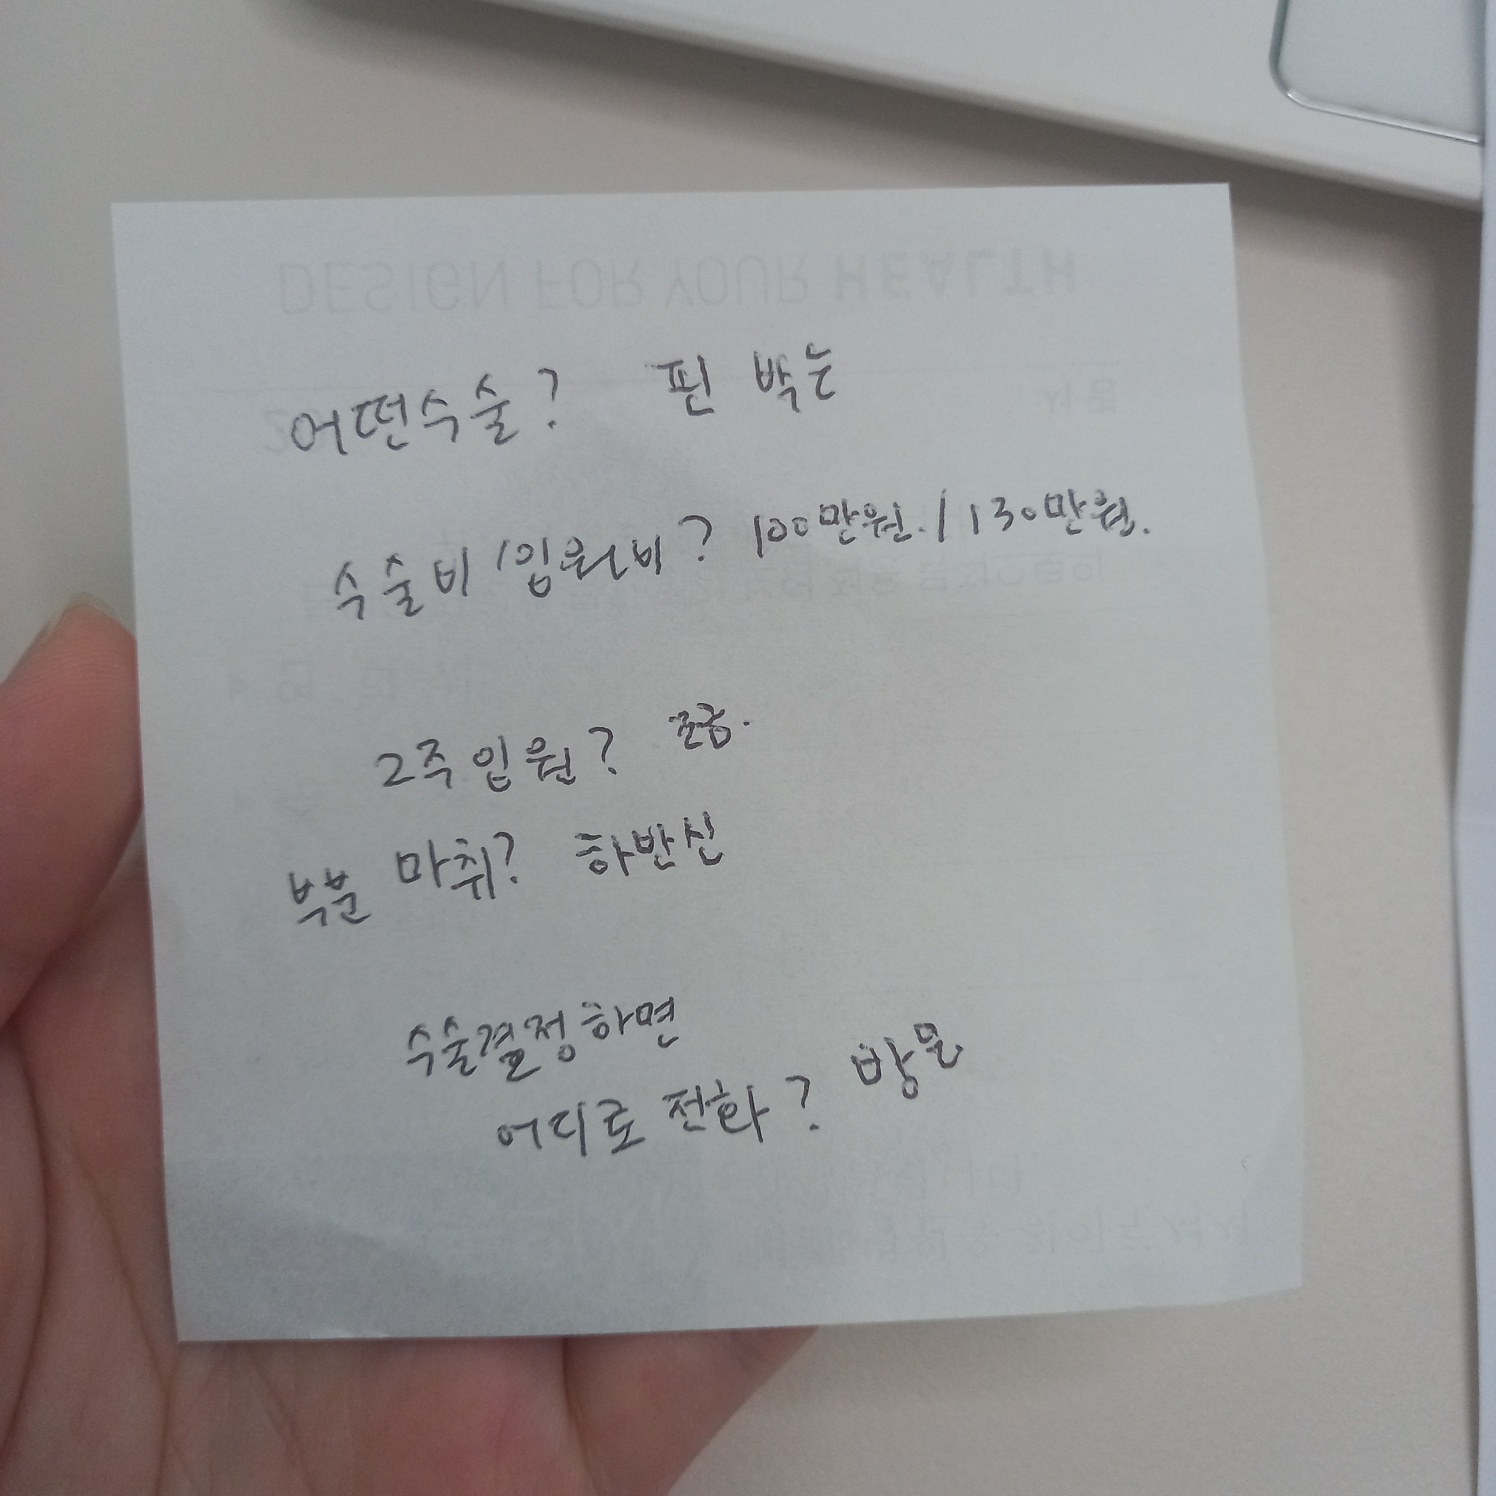 DESIGN FOR YOUR HEALTH
어떤수술? 핀 박는
수술비/입원비? 100만원./130만원.
2주입원? 조금.
부분 마취? 하반신
수술결정하면
어디로 전화? 방문